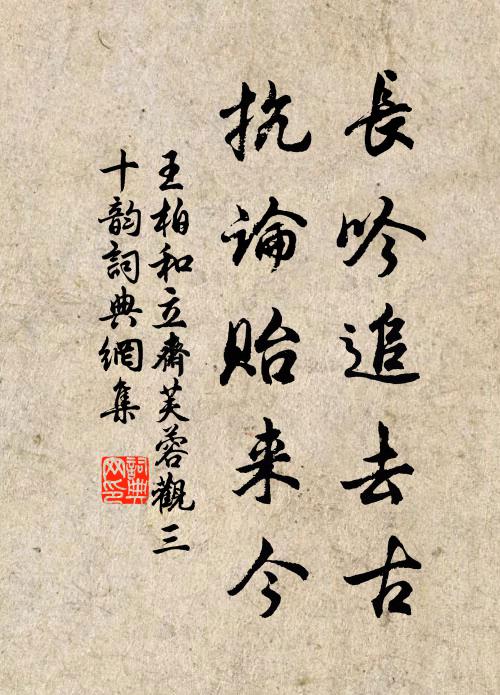 長吟追去古
抗論貽来今
王柏和立齋芙蓉觀三
十韵詞典網集
詞典
网印